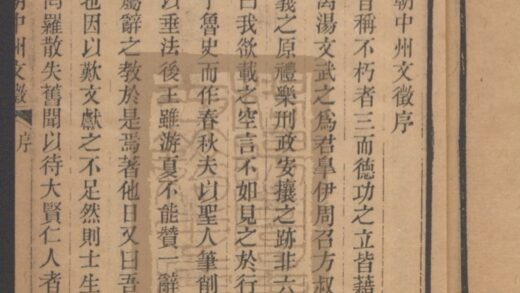 朝中州文徵序
稱不朽者三而德功之立皆藉
湯文武之爲君皋伊周召方叔
義之原禮樂刑政安攘之跡非六
曰我欲載之空言不如見之於行
魯史而作春秋夫以聖人筆削
以垂法後王雖游夏不能贊一辭
辭之教於是焉著他日又曰吾
也因以歎文獻之不足然則士生
羅散失舊聞以待大賢仁人者
朝中州文徵 序